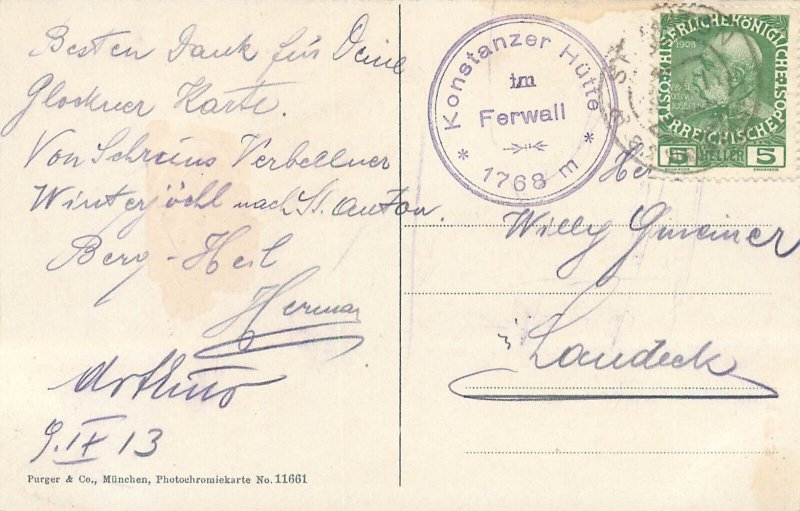 Besten Dank für Deine
Glockner Karte.
Von Schruns Verbellner
Winterjöchl nach St. Anton.
Berg-Heil
Herman
Arthur
9. IX 13
Purger & Co., München, Photochromiekarte No. 11661
* Konstanzer Hütte *
im
Ferwall
1768 m
KAISERLICHE KÖNIGLICHE
ÖSTERREICHISCHE POST
1908
5 HELLER 5
Herrn
Willy Gmeiner
Landeck